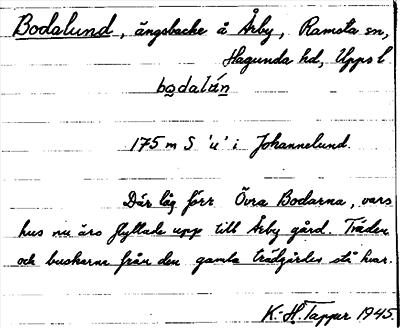 Bodalund, ängsbacke å Årby, Ramsta sn,
Hagunda hd, Upps l
bodalún
175 m S 'u' i Johannelund.
Där låg förr Övra Bodarna, vars
hus nu äro flyttade upp till Årby gård. Träden
och buskarna från den gamla trädgården stå kvar.
K. H. Tapper 1945.